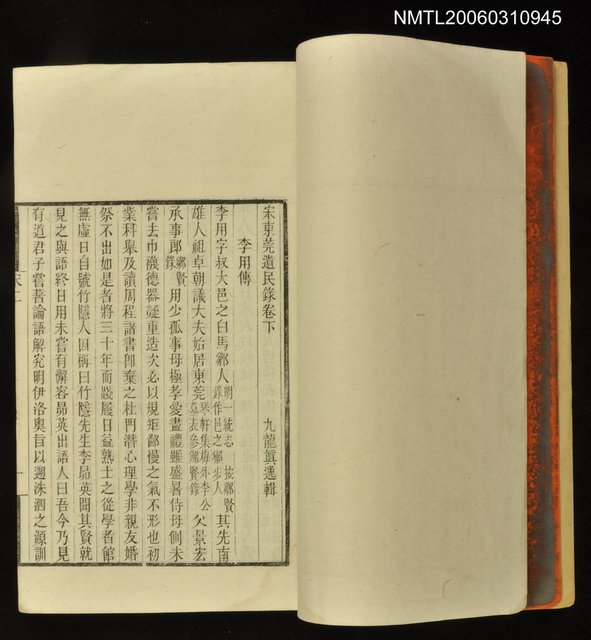 NMTL20060310945
宋東莞遺民錄卷下
九龍眞逸輯
李用傳
李用字叔大邑之白馬鄉人明一統志 按鄉賢錄作邑之獺步人其先南
雄人祖卓朝議大夫始居東莞琴軒集梅外李公墓表參鄉賢錄父景宏
承事郎鄉賢錄用少孤事母極孝愛盡禮雖盛暑侍母側未
嘗去巾襪德器凝重造次必以規矩鄙慢之氣不形也初
業科舉及讀周程諸書卽棄之杜門潛心理學非親友婚
祭不出如是者將三十年而踐履日益熟士之從學者館
無虛日自號竹隱人因稱曰竹隱先生李昴英聞其賢就
見之與語終日用未嘗有懈容昴英出語人曰吾今乃見
有道君子嘗著論語解究明伊洛奧旨以遡洙泗之源訓